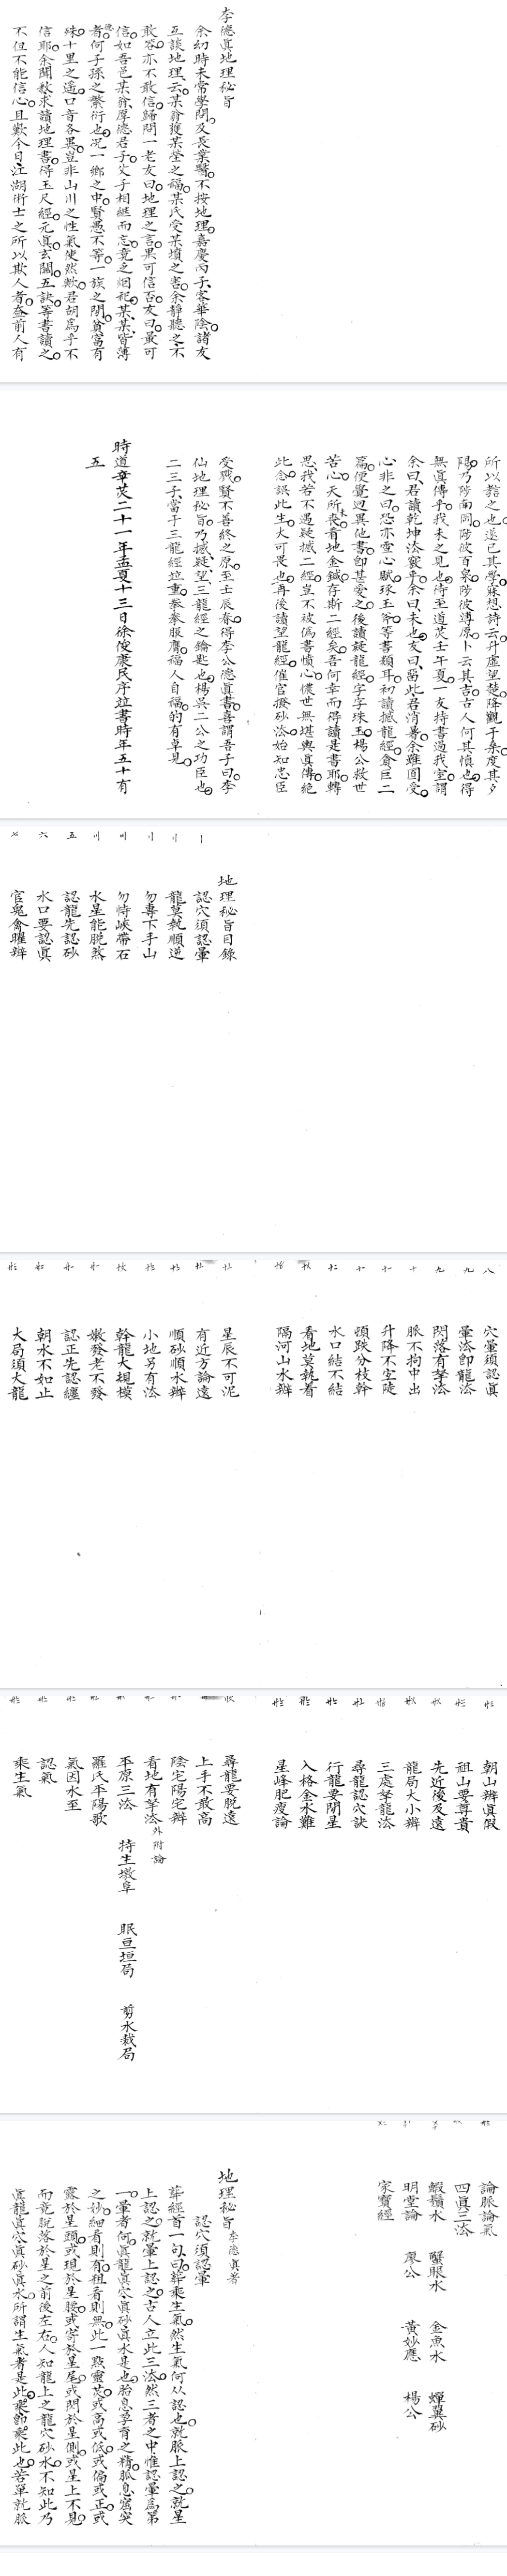 李德真地理秘旨
余幻時未常學問及長業醫不按地理嘉慶丙子客華陰諸友
互談地理云某翁護某塋之福某氏受某墳之害余靜聽之不
敢答亦不敢信歸問一老友曰地理之言果可信否友曰最可
信如吾邑某翁厚德君子父子相繼而亡竟乏烟祀某某皆薄
德者何子孫之繁衍也况一鄉之中賢愚不等一族之間貧富有
殊十里之遥口音各異豈非山川之性氣使然歟君胡為乎不
信耶余聞教求讀地理書得玉尺經元真玄關五訣等書讀之
不但不能信心且歎今日江湖術士之所以欺人者盡前人有
所以
之也遂已其學
想詩云升虛望楚降觀于桑度其夕
陽乃陟南岡陟彼百泉陟彼溥原卜云其吉古人何其慎也得
無真傳乎我未之見也待至道光壬午夏一友持書過我室謂
余曰君讀乾坤法竅乎余曰未也友曰曷此君消暑余雖囬受
心非之曰恐亦靈心賦球玉
等書類耳初讀撼龍經
巨二
篇便覺迥異他書卽甚愛之後讀疑龍經字字珠玉楊公救世
苦心天所未喪看地金鍼存斯二經矣吾何幸而得讀是書耶轉
思我若不遇疑撼二經豈不被偽書愤心儂世無堪輿真傳絶
此念誤此生大可畏也再後讀望龍經催官撥砂法始知忠臣
受戮賢不善終之原至壬辰春得李公德真書喜謂吾子曰李
仙地理秘旨乃撼疑望三龍經之鑰匙也楊吳二公之功臣也
二三子當于三龍經竝重參參服膺福人自福的有卓見
時道光二十一年孟夏十三日徐俊康民序竝書時年五十有
五
地理秘旨目錄
認穴須認暈
龍莫執順逆
勿專下手山
勿恃峽帶石
水星能脫煞
認龍先認砂
水口要認真
官鬼禽曜辨
穴暈須認真
暈法卽龍法
閃落有拏法
脈不拘中出
升降不宜陡
頓跌分枝幹
水口結不結
看地莫執着
隔河山水辨
星辰不可泥
有近方論遠
順砂順水辨
小地另有法
幹龍大規模
嫩發老不發
認正先認纒
朝水不如止
大局須大龍
朝山辨真假
祖山要尊貴
先近後及遠
龍局大小辨
三處拏龍法
尋龍認穴訣
行龍要開星
入格金水難
星峰肥瘦論
尋龍要脫遠
上手不敢高
陰宅陽宅辨
看地有拏法 外附論
平原三法 特生墩阜 眠亘垣局 剪水裁局
羅氏平陽歌
氣因水至
認氣
乘生氣
論脈論氣
四真三法
蝦鬚水 蟹眼水 金魚水 蟬翼砂
明堂論 廖公 黃妙應 楊公
家寶經
地理秘旨 李德真著
認穴須認暈
葬經首一句曰葬乘生氣然生氣何从認也就脈上認之就星
上認之就暈上認之古人立此三法然三者之中惟認暈為第
一暈者何真龍真穴真砂真水是也胎息孕育之精脈息窟突
之妙細看則有粗看則無此一點靈光或高或低或偏或正或
露於星頭或現於星腰或寄於星尾或閃於星側或星上不見
而竟脫落於星之前後左右人知龍上之龍穴砂水不知此乃
真龍真穴真砂真水所謂生氣者是此乘卽乘此也若單就脈